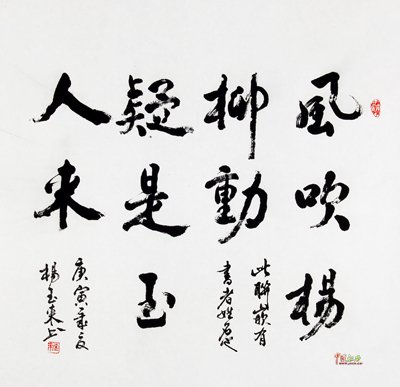 風吹楊
柳動
此聯嵌有
書者姓名
疑是玉
人来
庚寅夏
楊玉来